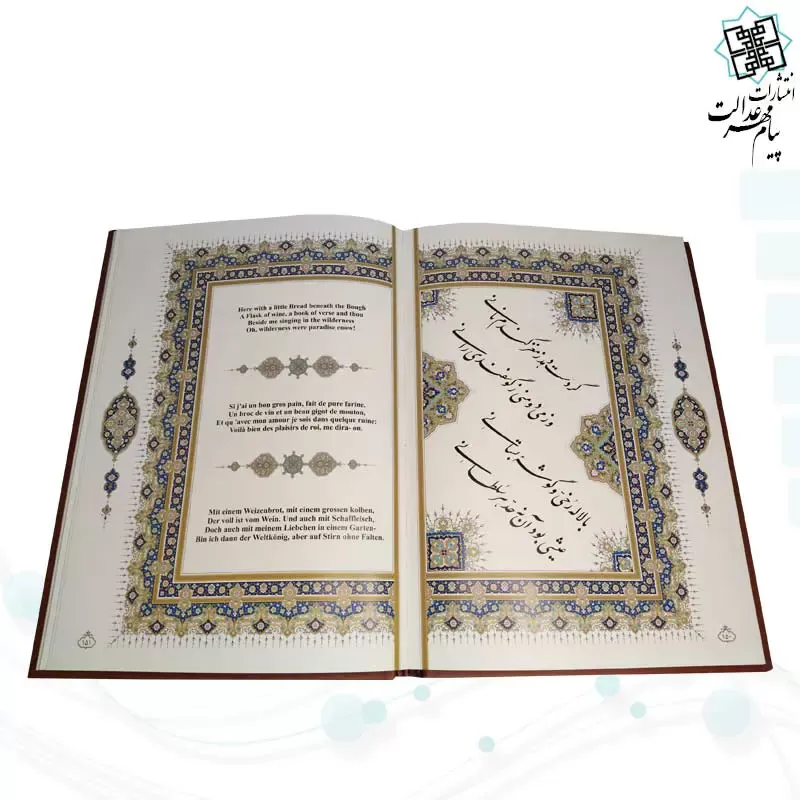 انتشارات
پیام مهر عدالت
گر دست دهد ز مغز گندم نانی
وز می دو منی ز گوسفندی رانی
با لاله رخی و گوشه بستانی
عیشی بود آن نه حد هر سلطانی
۱۵۰
Here with a little Bread beneath the Bough
A Flask of wine, a book of verse and thou
Beside me singing in the wilderness
Oh, wilderness were paradise enow!
Si j'ai un bon gros pain, fait de pure farine,
Un broc de vin et un beau gigot de mouton,
Et qu 'avec mon amour je sois dans quelque ruine:
Voilà bien des plaisirs de roi, me dira- on.
Mit einem Weizenbrot, mit einem grossen kolben,
Der voll ist vom Wein. Und auch mit Schaffleisch,
Doch auch mit meinem Liebchen in einem Garten-
Bin ich dann der Weltkönig, aber auf Stirn ohne Falten.
۱۵۱